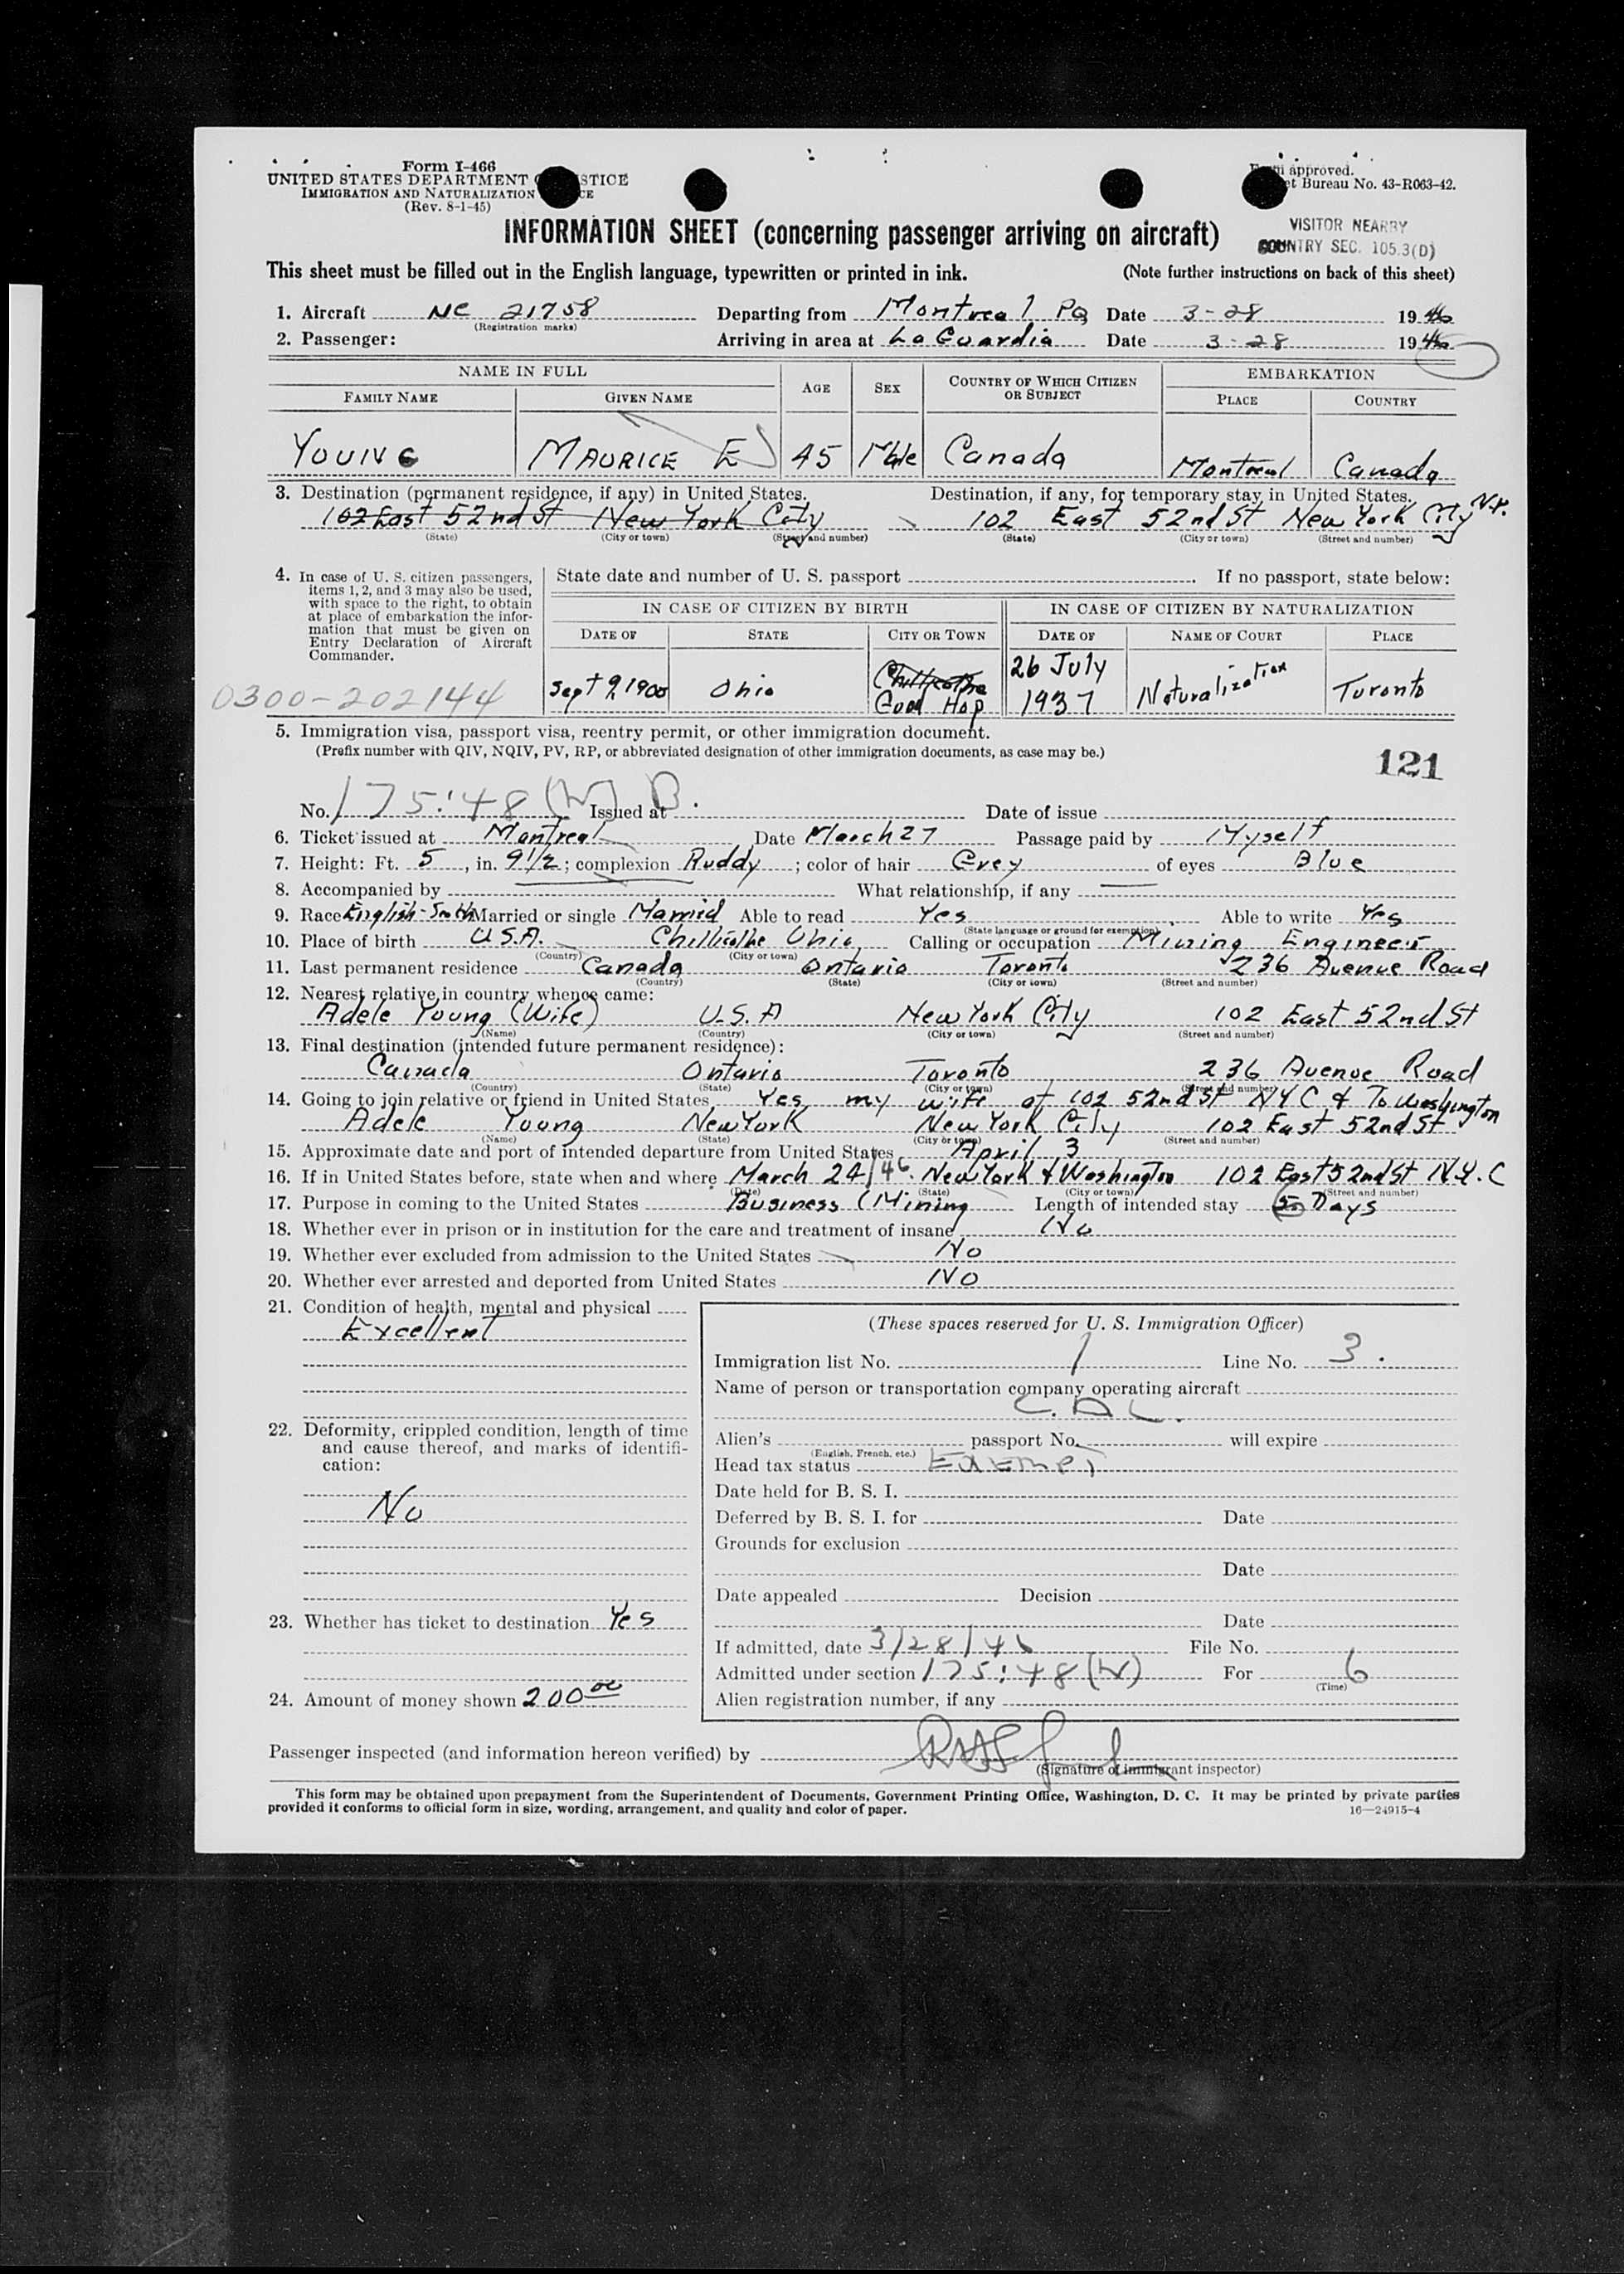 Form I-466
UNITED STATES DEPARTMENT STICE
IMMIGRATION AND NATURALIZATION CE
(Rev. 8-1-45)
approved.
Bureau No. 43-R063-42.
INFORMATION SHEET (concerning passenger arriving on aircraft)
VISITOR NEARBY
COUNTRY SEC. 105.3(D)
This sheet must be filled out in the English language, typewritten or printed in ink. (Note further instructions on back of this sheet)
1. Aircraft NC 21758 Departing from Montreal PQ Date 3-28 1946
(Registration marks)
2. Passenger: Arriving in area at La Guardia Date 3-28 1946
NAME IN FULL AGE SEX COUNTRY OF WHICH CITIZEN OR SUBJECT EMBARKATION
FAMILY NAME GIVEN NAME PLACE COUNTRY
YOUNG MAURICE E 45 Male Canada Montreal Canada
3. Destination (permanent residence, if any) in United States. Destination, if any, for temporary stay in United States.
102 East 52nd St New York City 102 East 52nd St New York City N.Y.
(State) (City or town) (Street and number) (State) (City or town) (Street and number)
4. In case of U. S. citizen passengers, items 1, 2, and 3 may also be used, with space to the right, to obtain at place of embarkation the information that must be given on Entry Declaration of Aircraft Commander.
State date and number of U. S. passport . If no passport, state below:
IN CASE OF CITIZEN BY BIRTH IN CASE OF CITIZEN BY NATURALIZATION
DATE OF STATE CITY OR TOWN DATE OF NAME OF COURT PLACE
Sept 9, 1900 Ohio Chillicothe Good Hop 26 July 1937 Naturalization Toronto
0300-202144
5. Immigration visa, passport visa, reentry permit, or other immigration document.
(Prefix number with QIV, NQIV, PV, RP, or abbreviated designation of other immigration documents, as case may be.)
121
No. 175:48 (W) B. Issued at Date of issue
6. Ticket issued at Montreal Date March 27 Passage paid by Myself
7. Height: Ft. 5, in. 9 1/2; complexion Ruddy; color of hair Grey of eyes Blue
8. Accompanied by What relationship, if any
9. Race English-Scotch Married or single Married Able to read Yes Able to write Yes
(State language or ground for exemption)
10. Place of birth U.S.A. Chillicothe Ohio Calling or occupation Mining Engineer
(Country) (City or town)
11. Last permanent residence Canada Ontario Toronto 236 Avenue Road
(Country) (State) (City or town) (Street and number)
12. Nearest relative in country whence came:
Adele Young (Wife) U.S.A New York City 102 East 52nd St
(Name) (Country) (City or town) (Street and number)
13. Final destination (intended future permanent residence):
Canada Ontario Toronto 236 Avenue Road
(Country) (State) (City or town) (Street and number)
14. Going to join relative or friend in United States Yes my wife at 102 52nd St NYC & To Washington
Adele Young New York New York City 102 East 52nd St
(Name) (State) (City or town) (Street and number)
15. Approximate date and port of intended departure from United States April 3
16. If in United States before, state when and where March 24/46. New York & Washington 102 East 52nd St N.Y.C
(Date) (State) (City or town) (Street and number)
17. Purpose in coming to the United States Business (Mining Length of intended stay 5 Days
18. Whether ever in prison or in institution for the care and treatment of insane No
19. Whether ever excluded from admission to the United States No
20. Whether ever arrested and deported from United States NO
21. Condition of health, mental and physical
Excellent
22. Deformity, crippled condition, length of time and cause thereof, and marks of identification:
No
23. Whether has ticket to destination Yes
24. Amount of money shown 200 00
(These spaces reserved for U. S. Immigration Officer)
Immigration list No. 1 Line No. 3.
Name of person or transportation company operating aircraft
Alien's passport No. will expire
(English, French, etc.)
Head tax status Exempt
Date held for B. S. I.
Deferred by B. S. I. for Date
Grounds for exclusion
Date
Date appealed Decision
Date
If admitted, date 3/28/46 File No.
Admitted under section 175:48(W) For 6
(Time)
Alien registration number, if any
Passenger inspected (and information hereon verified) by
(Signature of immigrant inspector)
This form may be obtained upon prepayment from the Superintendent of Documents, Government Printing Office, Washington, D. C. It may be printed by private parties
provided it conforms to official form in size, wording, arrangement, and quality and color of paper. 16—24915-4